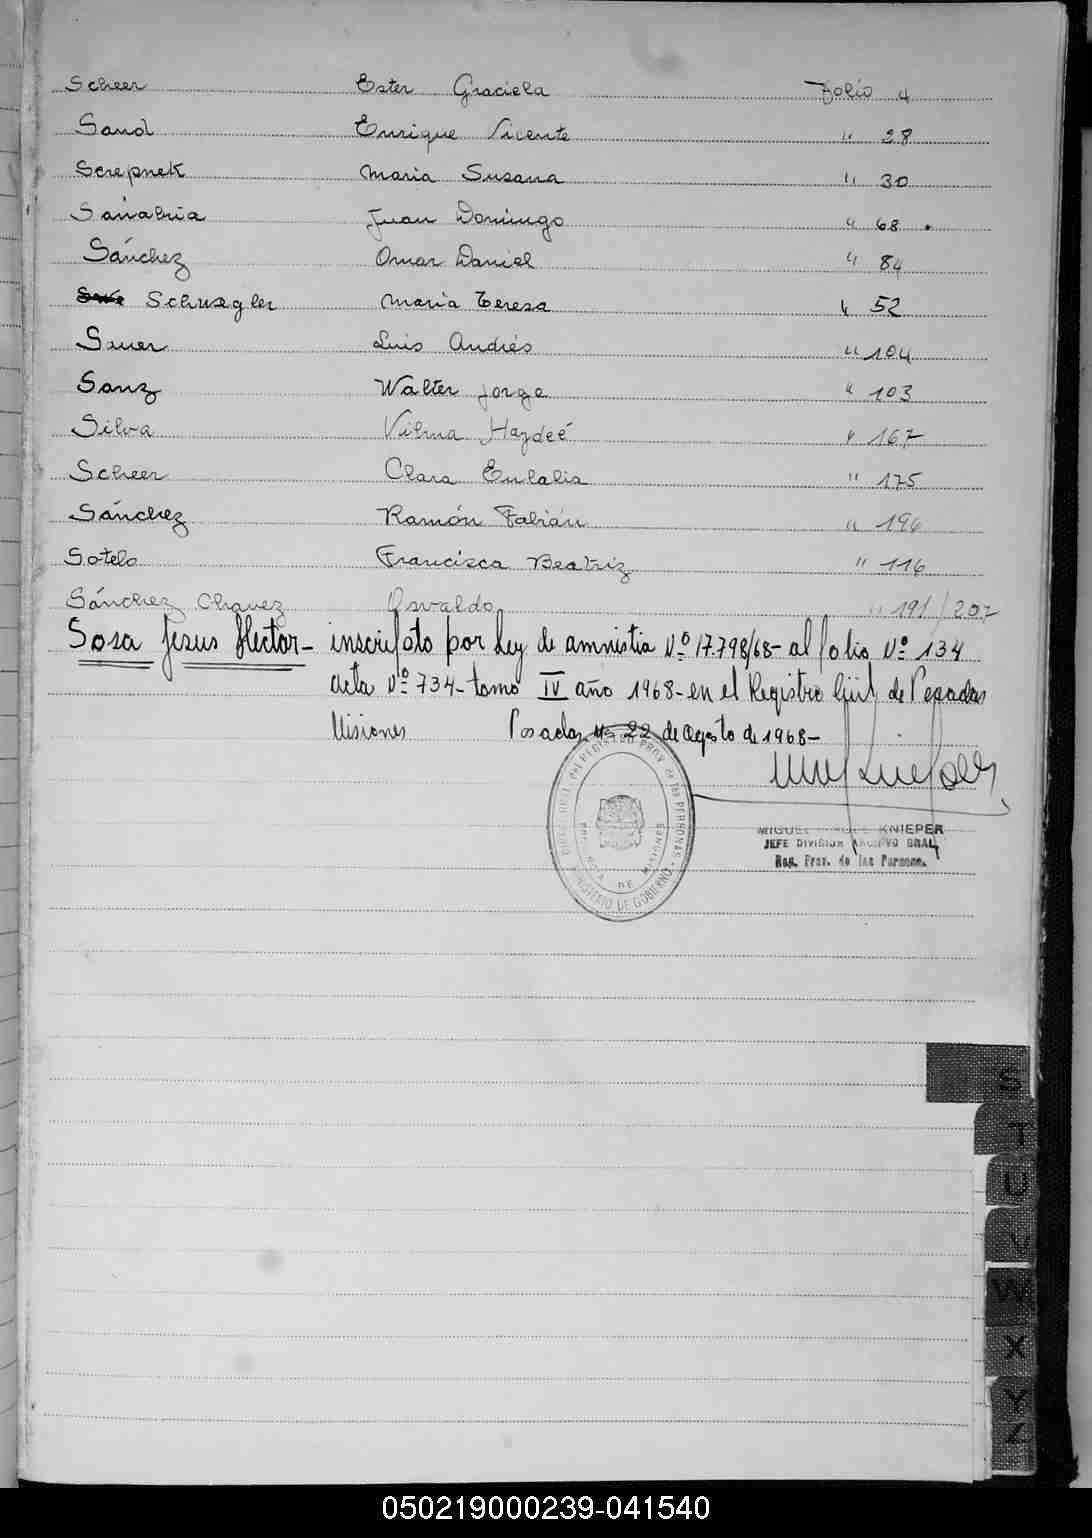 Scheer Ester Graciela Folio 4
Sand Enrique Vicente " 28
Screpnek Maria Susana " 30
Sanabria Juan Domingo " 68.
Sánchez Omar Daniel " 84
Schwagler Maria Teresa " 52
Sauer Luis Andrés " 104
Sanz Walter Jorge " 103
Silva Vilma Haydeé " 167
Scheer Clara Eulalia " 175
Sánchez Ramón Fabián " 196
Sotelo Francisca Beatriz " 116
Sánchez Chavez Osvaldo " 191/207
Sosa Jesus Hector - inscripto por Ley de amnistia Nº 17.798/68 - al folio Nº 134
acta Nº 734 - tomo IV año 1968 - en el Registro Civil de Posadas
Misiones Posadas, 22 de agosto de 1968 -
DEL REGISTRO PROV. de las PERSONAS
DE MISIONES
MINISTERIO DE GOBIERNO
MIGUEL KNIEPER
JEFE DIVISION ARCHIVO GRAL
Reg. Prov. de las Personas.
S
T
U
V
W
X
Y
Z
050219000239-041540